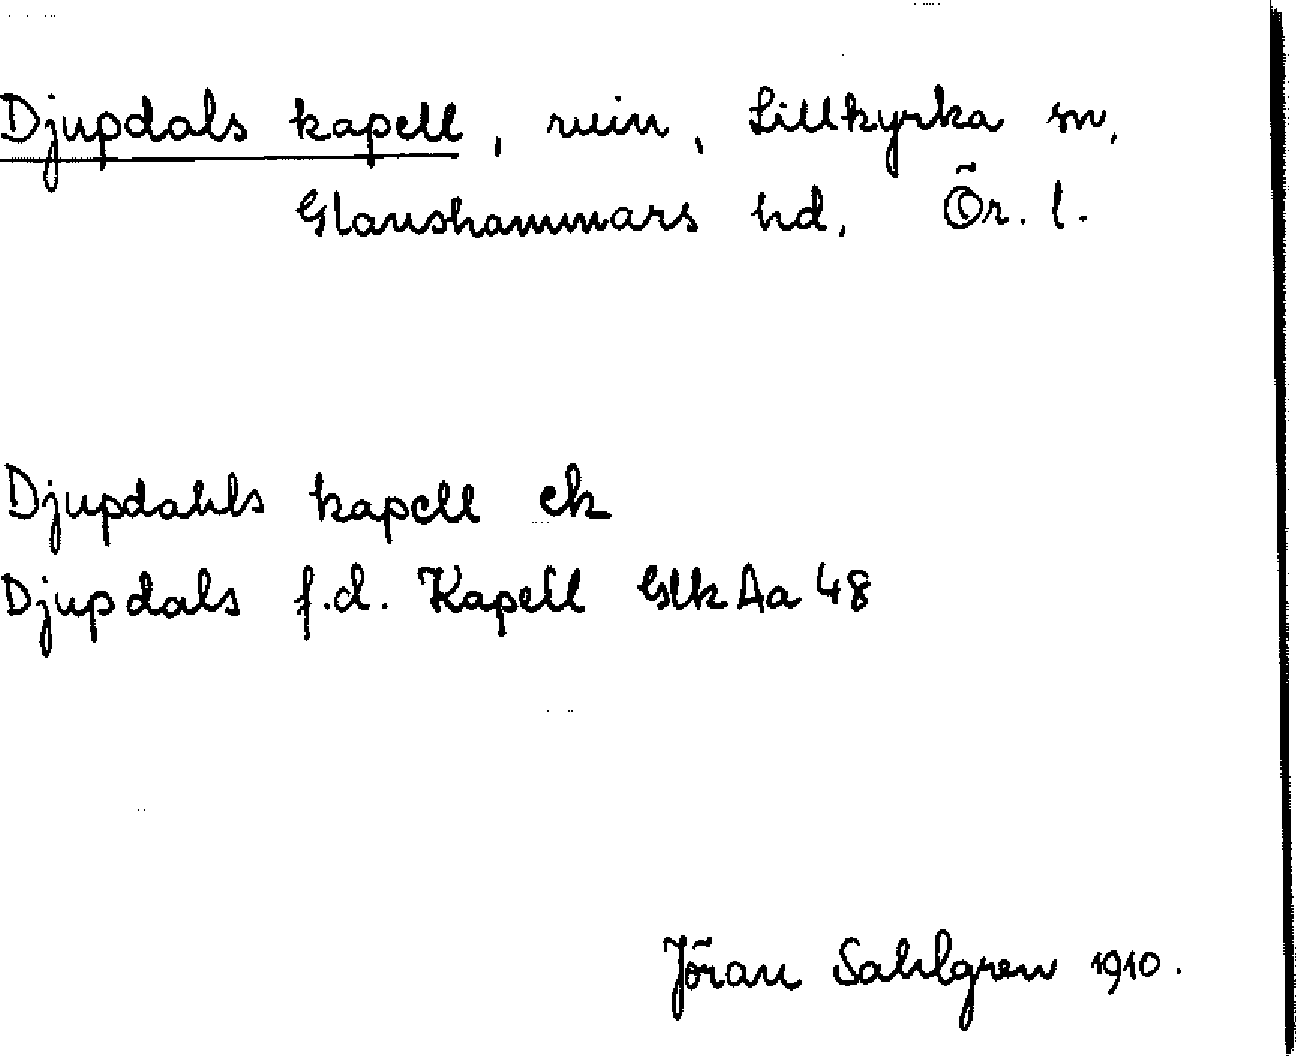 Djupdals kapell, ruin, Lillkyrka sn,
Glanshammars hd, Ör. l.
Djupdahls kapell ek
Djupdals f.d. Kapell GlkAa 48
Jöran Sahlgren 1910.